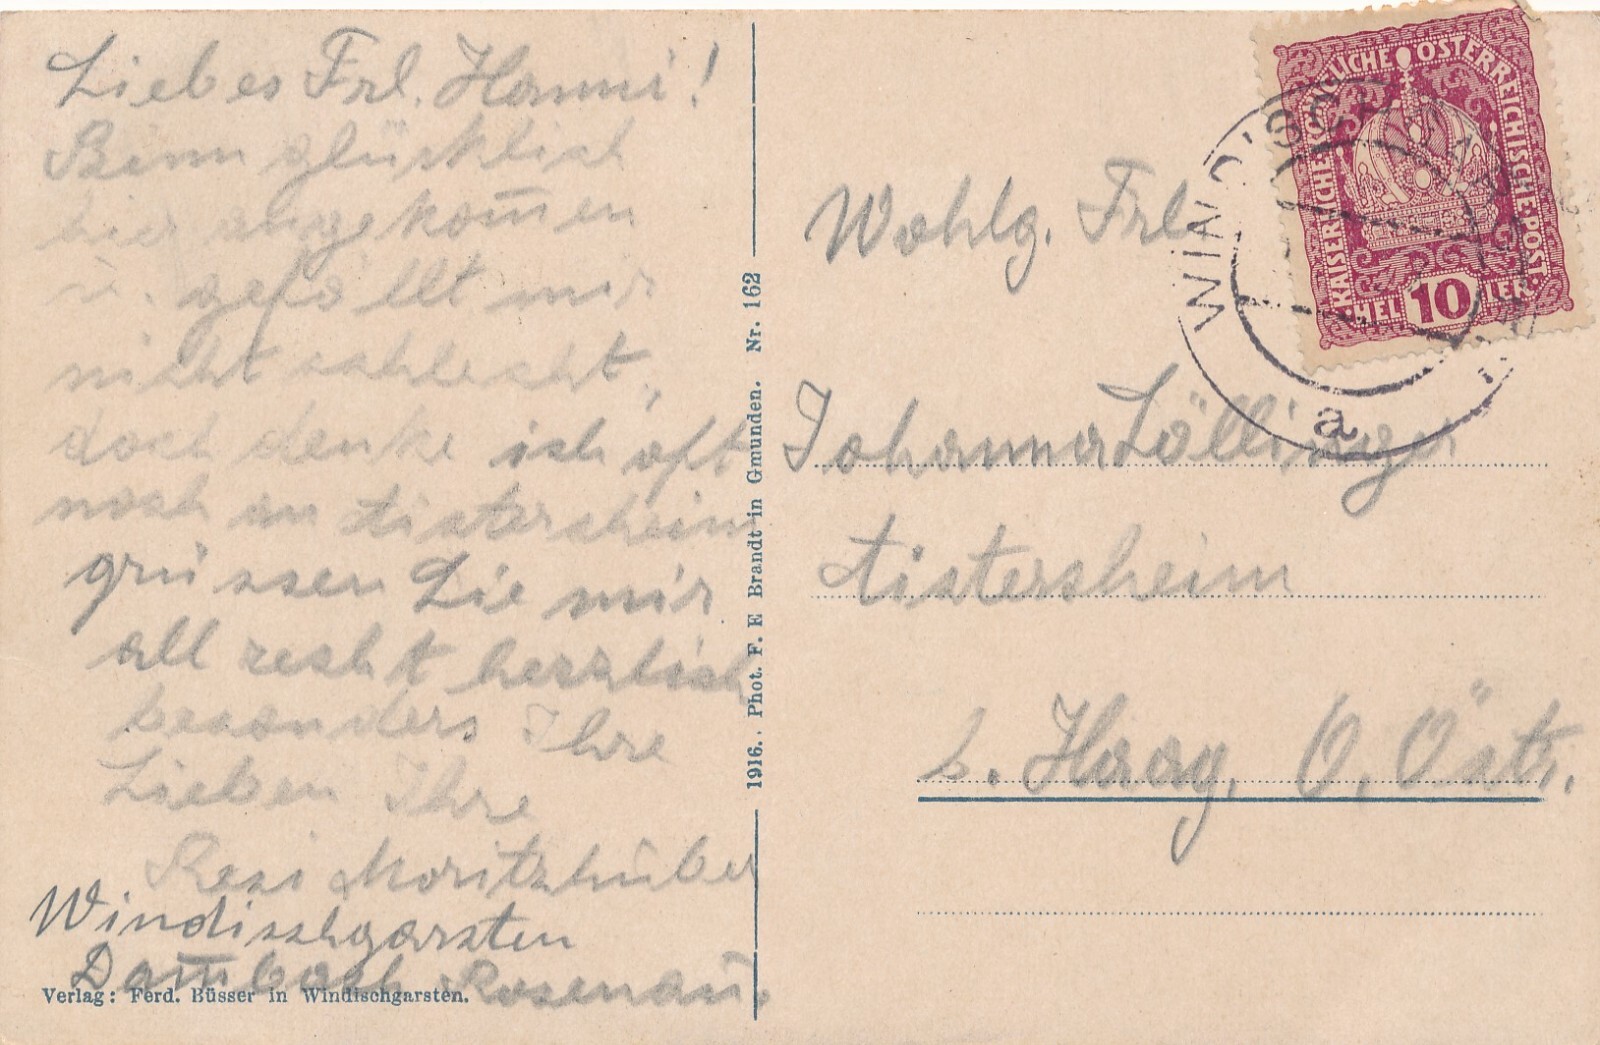 Liebes Frl. Hanni!
Binn glücklich
hier angekom̅en
u. gefällt mir
nicht schlecht,
doch denke ich oft
noch an Aistersheim
grüssen Sie mir
all recht herzlich
besonders Ihre
Lieben Ihre
Resi Moritzhuber
Windischgarsten
Dam̅bach Rosenau.
Verlag: Ferd. Büsser in Windischgarsten.
1916. Phot. F. E Brandt in Gmunden. Nr. 162
KAISERLICHE KÖNIGLICHE ÖSTERREICHISCHE POST
HELLER 10
WINDISCHGARSTEN
a
Wohlg. Frl.
Johanna Löllinger
Aistersheim
b. Haag, O. Östr.